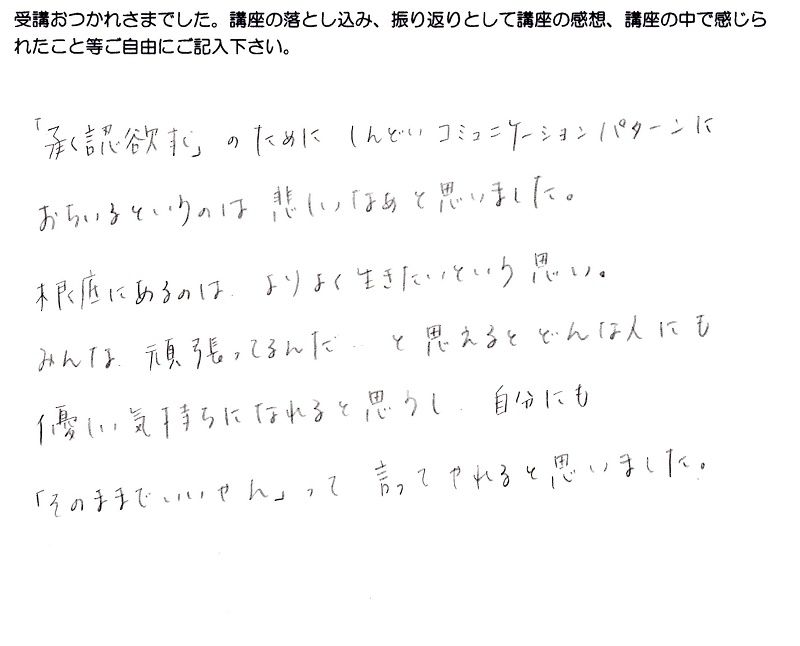 受講おつかれさまでした。講座の落とし込み、振り返りとして講座の感想、講座の中で感じら
れたこと等ご自由にご記入下さい。
「承認欲求」のために しんどいコミュニケーションパターンに
おちいるというのは 悲しいなぁと思いました。
根底にあるのは、よりよく生きたいという思い。
みんな、頑張ってるんだ…と思えるとどんな人にも
優しい気持ちになれると思うし、自分にも
「そのままでいいやん」って 言ってやれると思いました。